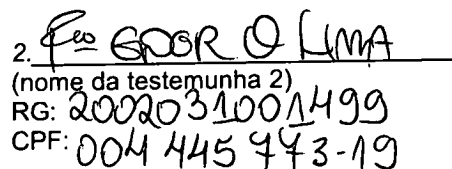 2. Fco EDGR O LIMA
(nome da testemunha 2)
RG: 2002031001499
CPF: 004 445 773-19